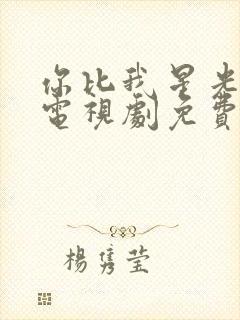 你比我星光
電視劇免費
楊隽莹